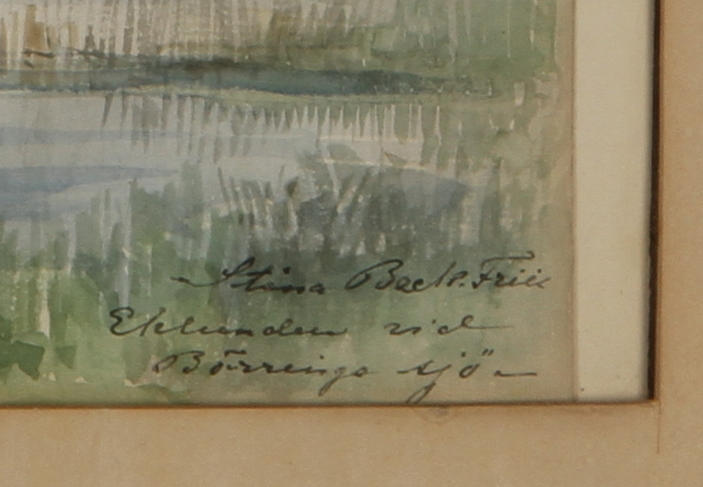 Stina Beck-Friis
Eklunden vid
Börringe sjö